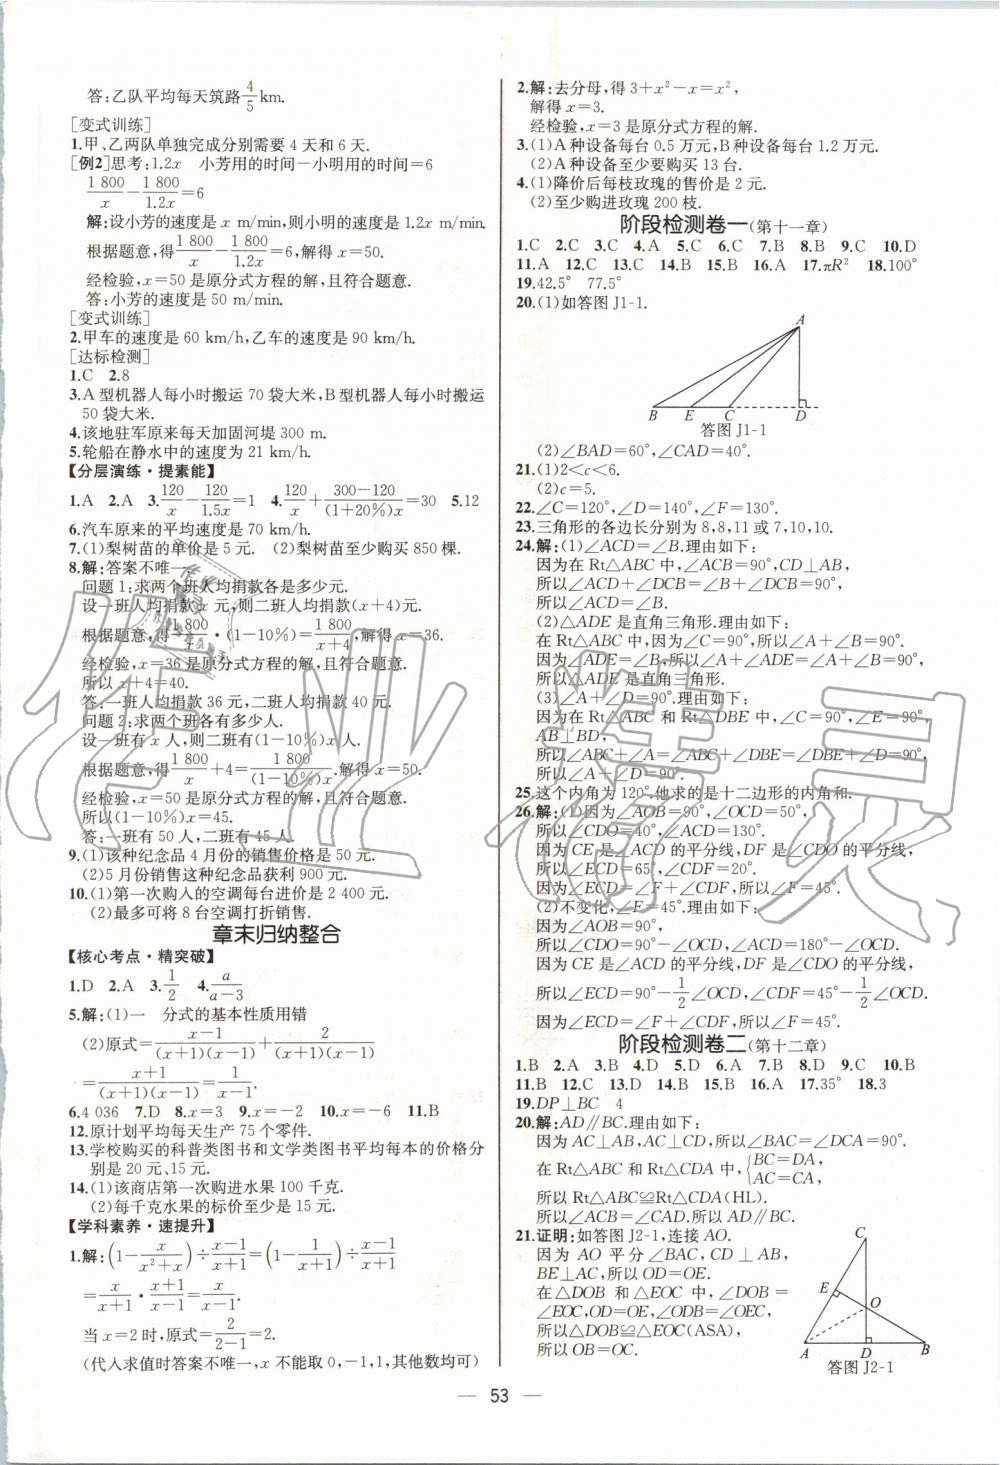 答:乙队平均每天筑路4/5 km.
[变式训练]
1.甲、乙两队单独完成分别需要 4 天和 6 天.
[例2]思考:1.2x　小芳用的时间－小明用的时间＝6
1 800/x－1 800/1.2x＝6
解:设小芳的速度是 x m/min,则小明的速度是 1.2x m/min.
根据题意,得1 800/x－1 800/1.2x＝6,解得 x＝50.
经检验,x＝50 是原分式方程的解,且符合题意.
答:小芳的速度是 50 m/min.
[变式训练]
2.甲车的速度是 60 km/h,乙车的速度是 90 km/h.
[达标检测]
1.C　2.8
3.A 型机器人每小时搬运 70 袋大米,B 型机器人每小时搬运
50 袋大米.
4.该地驻军原来每天加固河堤 300 m.
5.轮船在静水中的速度为 21 km/h.
【分层演练·提素能】
1.A　2.A　3.120/x－120/1.5x＝1　4.120/x＋(300－120)/((1＋20%)x)＝30　5.12
6.汽车原来的平均速度是 70 km/h.
7.(1)梨树苗的单价是 5 元.　(2)梨树苗至少购买 850 棵.
8.解:答案不唯一.
问题 1:求两个班人均捐款各是多少元.
设一班人均捐款 x 元,则二班人均捐款(x＋4)元.
根据题意,得1 800/x·(1－10%)＝1 800/(x＋4),解得 x＝36.
经检验,x＝36 是原分式方程的解,且符合题意.
所以 x＋4＝40.
答:一班人均捐款 36 元,二班人均捐款 40 元.
问题 2:求两个班各有多少人.
设一班有 x 人,则二班有(1－10%)x 人.
根据题意,得1 800/x＋4＝1 800/((1－10%)x).解得 x＝50.
经检验,x＝50 是原分式方程的解,且符合题意.
所以(1－10%)x＝45.
答:一班有 50 人,二班有 45 人.
9.(1)该种纪念品 4 月份的销售价格是 50 元.
(2)5 月份销售这种纪念品获利 900 元.
10.(1)第一次购入的空调每台进价是 2 400 元.
(2)最多可将 8 台空调打折销售.
章末归纳整合
【核心考点·精突破】
1.D　2.A　3.1/2　4.a/(a－3)
5.解:(1)一　分式的基本性质用错
(2)原式＝(x－1)/((x＋1)(x－1))＋2/((x＋1)(x－1))
＝(x＋1)/((x＋1)(x－1))＝1/(x－1).
6.4 036　7.D　8.x＝3　9.x＝－2　10.x＝－6　11.B
12.原计划平均每天生产 75 个零件.
13.学校购买的科普类图书和文学类图书平均每本的价格分
别是 20 元、15 元.
14.(1)该商店第一次购进水果 100 千克.
(2)每千克水果的标价至少是 15 元.
【学科素养·速提升】
1.解:(1－x/(x²＋x))÷(x－1)/(x＋1)＝(1－1/(x＋1))÷(x－1)/(x＋1)
＝x/(x＋1)·(x＋1)/(x－1)＝x/(x－1).
当 x＝2 时,原式＝2/(2－1)＝2.
(代入求值时答案不唯一,x 不能取 0,－1,1,其他数均可)
2.解:去分母,得 3＋x²－x＝x²,
解得 x＝3.
经检验,x＝3 是原分式方程的解.
3.(1)A 种设备每台 0.5 万元,B 种设备每台 1.2 万元.
(2)A 种设备至少要购买 13 台.
4.(1)降价后每枝玫瑰的售价是 2 元.
(2)至少购进玫瑰 200 枝.
阶段检测卷一(第十一章)
1.C　2.C　3.C　4.A　5.C　6.C　7.B　8.B　9.C　10.D
11.A　12.C　13.C　14.B　15.B　16.A　17.πR²　18.100°
19.42.5°　77.5°
20.(1)如答图 J1-1.
A
B　E　C　D
答图 J1-1
(2)∠BAD＝60°,∠CAD＝40°.
21.(1)2<c<6.
(2)c＝5.
22.∠C＝120°,∠D＝140°,∠F＝130°.
23.三角形的各边长分别为 8,8,11 或 7,10,10.
24.解:(1)∠ACD＝∠B.理由如下:
因为在 Rt△ABC 中,∠ACB＝90°,CD⊥AB,
所以∠ACD＋∠DCB＝∠B＋∠DCB＝90°.
所以∠ACD＝∠B.
(2)△ADE 是直角三角形.理由如下:
在 Rt△ABC 中,因为∠C＝90°,所以∠A＋∠B＝90°.
因为∠ADE＝∠B,所以∠A＋∠ADE＝∠A＋∠B＝90°.
所以△ADE 是直角三角形.
(3)∠A＋∠D＝90°.理由如下:
因为在 Rt△ABC 和 Rt△DBE 中,∠C＝90°,∠E＝90°,
AB⊥BD,
所以∠ABC＋∠A＝∠ABC＋∠DBE＝∠DBE＋∠D＝90°.
所以∠A＋∠D＝90°.
25.这个内角为 120°,他求的是十二边形的内角和.
26.解:(1)因为∠AOB＝90°,∠OCD＝50°,
所以∠CDO＝40°,∠ACD＝130°.
因为 CE 是∠ACD 的平分线,DF 是∠CDO 的平分线,
所以∠ECD＝65°,∠CDF＝20°.
因为∠ECD＝∠F＋∠CDF,所以∠F＝45°.
(2)不变化,∠F＝45°.理由如下:
因为∠AOB＝90°,
所以∠CDO＝90°－∠OCD,∠ACD＝180°－∠OCD.
因为 CE 是∠ACD 的平分线,DF 是∠CDO 的平分线,
所以∠ECD＝90°－1/2∠OCD,∠CDF＝45°－1/2∠OCD.
因为∠ECD＝∠F＋∠CDF,所以∠F＝45°.
阶段检测卷二(第十二章)
1.B　2.A　3.B　4.D　5.D　6.B　7.B　8.D　9.C　10.B
11.B　12.C　13.D　14.B　15.B　16.A　17.35°　18.3
19.DP⊥BC　4
20.解:AD∥BC.理由如下:
因为 AC⊥AB,AC⊥CD,所以∠BAC＝∠DCA＝90°.
在 Rt△ABC 和 Rt△CDA 中,{BC＝DA,
AC＝CA,
所以 Rt△ABC≌Rt△CDA(HL).
所以∠ACB＝∠CAD.所以 AD∥BC.
21.证明:如答图 J2-1,连接 AO.
因为 AO 平分∠BAC,CD⊥AB,
BE⊥AC,所以 OD＝OE.
在△DOB 和△EOC 中,∠DOB＝
∠EOC,OD＝OE,∠ODB＝∠OEC,
所以△DOB≌△EOC(ASA).
所以 OB＝OC.
C
E
O
A　D　B
答图 J2-1
— 53 —
作业精灵